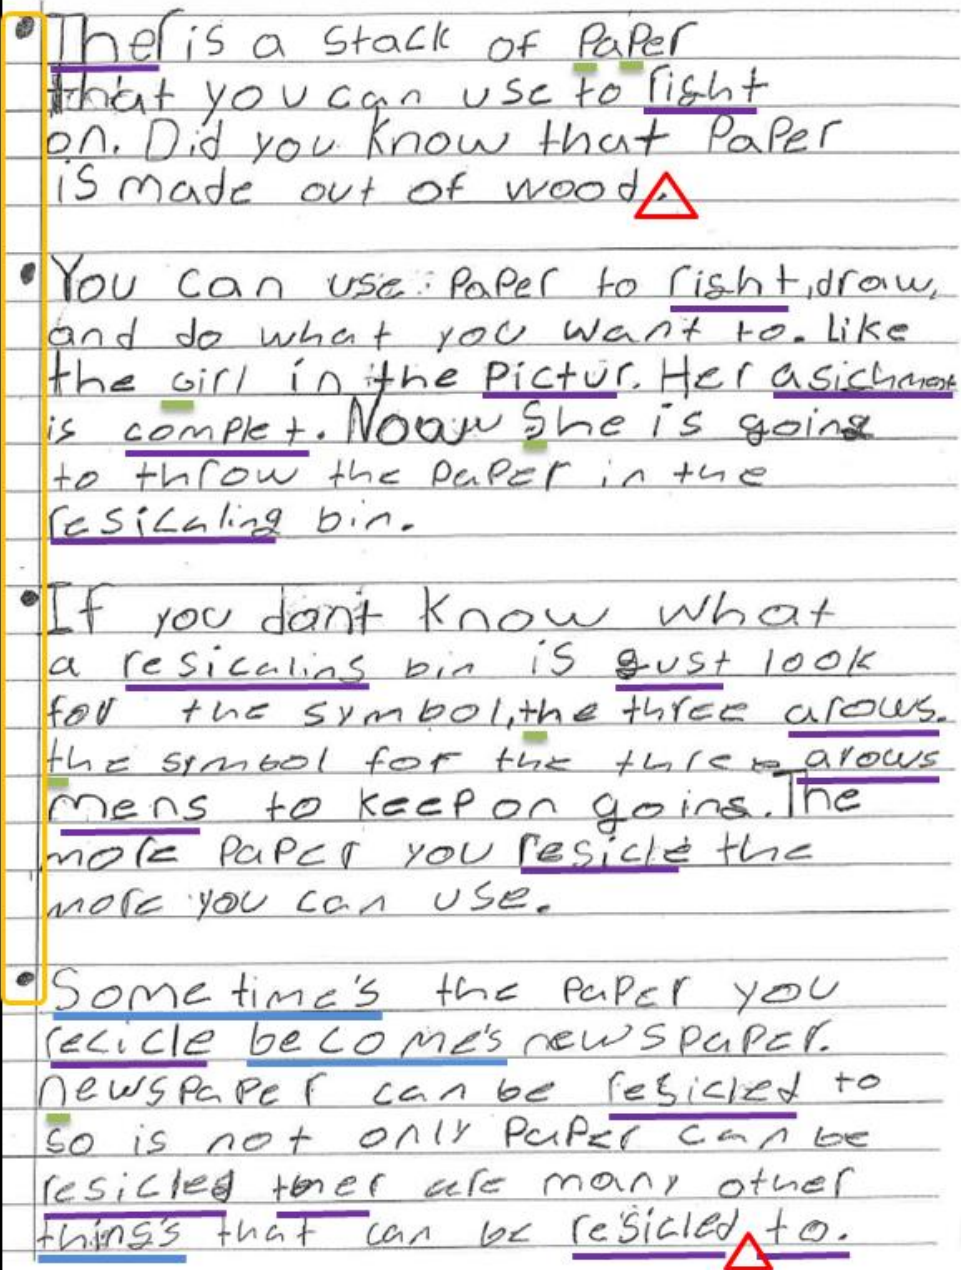 • Ther is a stack of PaPer
that you can use to right
on. Did you know that PaPer
is made out of wood.
• You can use PaPer to right, draw,
and do what you want to. Like
the Girl in the Pictur. Her asichment
is complet. Noow She is going
to throw the PaPer in the
resicaling bin.
• If you dont know what
a resicaling bin is gust look
for the symbol, the three arows.
the symbol for the three arows
mens to keep on going. The
more PaPer you resicle the
more you can use.
• Sometime's the PaPer you
recicle become's newspaper.
newspaper can be resicled to
so is not only PaPer can be
resicled ther are many other
thing's that can be resicled to.